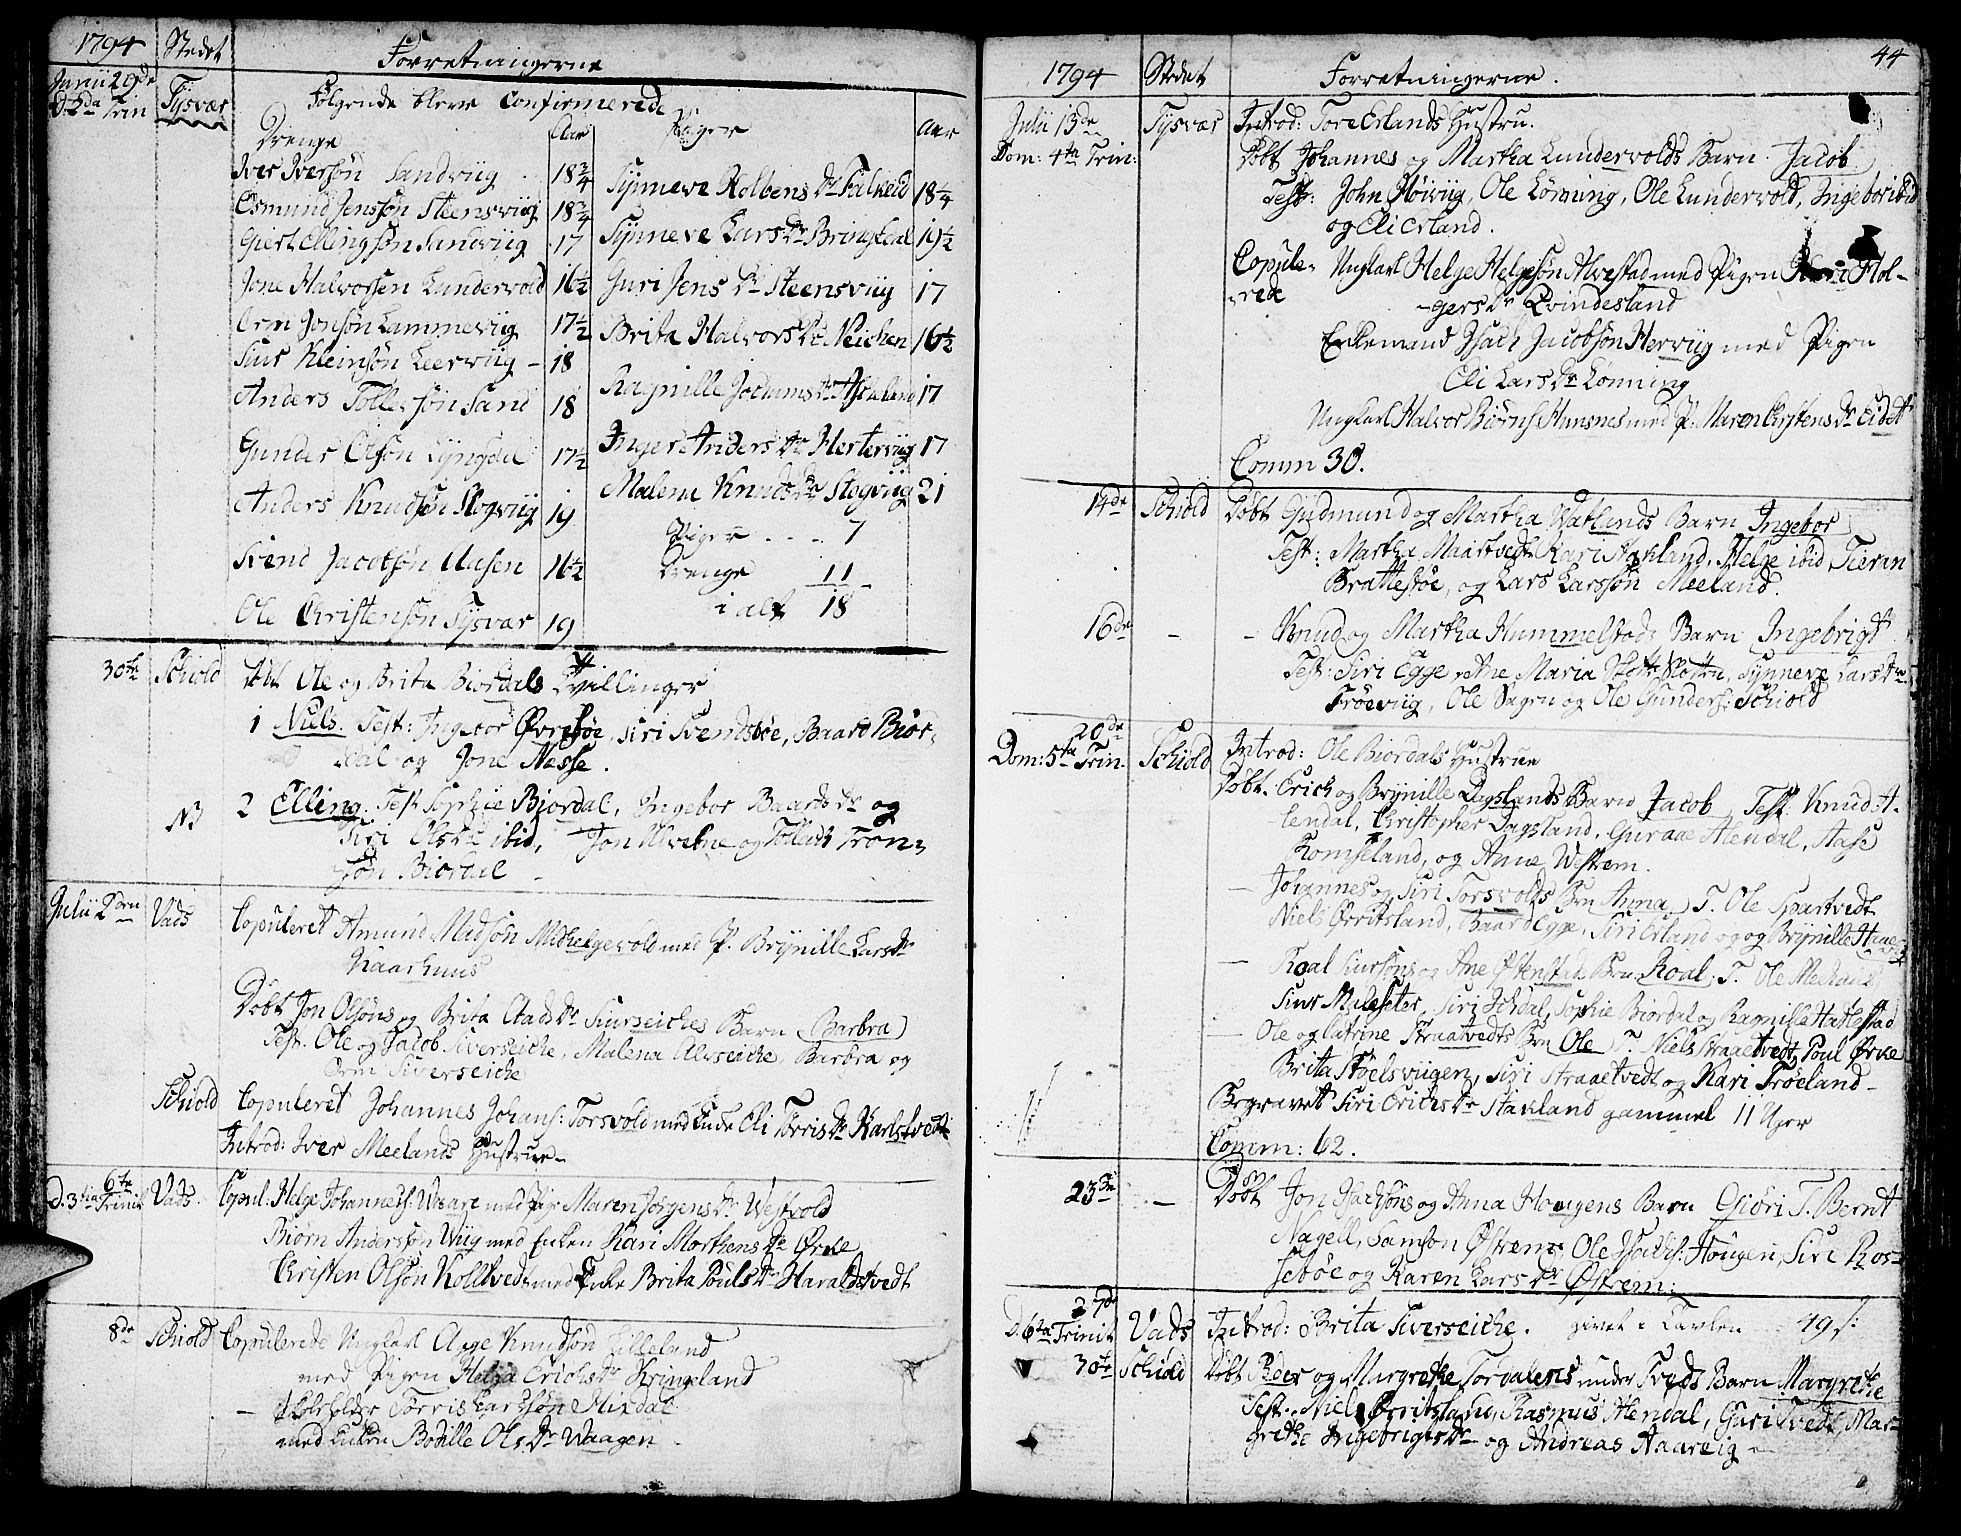 1794 Stedet Forretningerne
Junii 29de Tysvær Følgende bleve Confirmerede
D: 2da Trin
Drenge Aar Piger Aar
Iver Iversøn Sandviig 18 3/4 Synneve Kolbens Dr Falkeid 18 1/4
Osmund Jenssøn Steensviig 18 3/4 Synneve Lars Dr Bringedal 19 1/2
Giert Ellingsøn Sandviig 17 Guri Jens Dr Steensviig 17
Jone Halvorsen Lundervold 16 1/2 Brita Halvors Dr Neichen 16 1/2
Orm Jonsøn Lammeviig 17 1/2
Siur Kleinsøn Leerviig 18 Ragnille Dr 17
Anders Tollefsøn Sand 18
Gunder Olsøn Lyngdal 17 1/2 Inger Anders Dr Herterviig 17
Anders Knudsøn Slogviig 19 Malena Knuds Dr Slogviig 21
Svend Jacobsøn Aasen 16 1/2 Piger 7
Drenge 11
Ole Christensøn Tysvær 19 i alt 18
30te Schiold Døbt Ole og Brita Biordals Tvillinger
1 Niels. Test: Ingebor Øvrebøe, Siri Svendsbøe, Baard Bior-
dal og Jone Nesse.
NB 2 Elling. Test Sophie Bjordal, Ingebor Baards Dr og
Siri Ols Dr ibid, Jon Alvebne og Tollech Tron-
søn Biordal
Julii 2den Vads Copuleret Amund Madsøn Midhelgevold med P. Brynille Lars Dr
Kaarhuus
Døbt Jon Olsøns og Brita Dr Siurseiches Barn Barbra
Test. Ole og Jacob Siverseiche, Malena Alvseiche, Barbra og
Orm Siverseiche
Schiold Copuleret Johannes Johans: Torsvold med Enke Eli Torris Dr Karlstvedt
Introd: Iver Meelands Hustrue
6te
D. 3tia Trinit Vads. Copul: Helge Johanness. Waage med Pige Maren Jørgens Dr Westvold
Biørn Andersøn Wiig med Enken Kari Morthens Dr Ørke
Christen Olsøn Kolltvedt med Enke Brita Pouls Dr Haraldstvedt
8de Schiold Copulerede Ungkarl Aage Knudsøn Lilleland
med Pigen Helga Erichs Dr Kringeland
Torris Larssøn Mixdal
med Enken Bodille Ols Dr Waagen
44
1794 Stedet Forretningerne.
Julii 13de Tysvær Introd: Tore Erlands Hustru.
Dom: 4ta Trin: Døbt Johannes og Martha Lundervolds Barn Jacob
Test: John Høiviig, Ole Lønning, Ole Lundervold, Ingebor ibid
og Eli Erland.
Copule- Ungkarl Helge Helgesøn Alvestad med Pigen Hol-
rede gers Dr Qvindesland
Enkemand Isach Jacobsøn Herviig med Pigen
Eli Lars Dr Lønning
Ungkarl Halvor Biørns: med P. Maren Christens Dr Eidet
Comm 30.
14de Schiold Døbt Gudmund og Martha Watlands Barn Ingebor
Test: Martha Maartvedt Kari Aakland, Helge ibid Tieran
Brattebøe, og Lars Larssøn Meeland.
16de - - Knud og Martha Hummelstads Barn Ingebrigt
Test: Siri Egge, Ane Maria Synneve Lars Dr
Trøeviig, Ole Sagen og Ole Gunders: Schiold
20de
Dom: 5ta Trin. Schiold Introd: Ole Biordals Hustrue
Døbt. Erich og Brynille Dagslands Barn Jacob Test. Knud A-
lendal, Christopher Dagsland, Guraae Alendal, Aase
Romseland, og Anne Westrem.
- Johannes og Siri Torsvolds Brn Anna T. Ole Svartvedt
Niels Ørritsland, Baard Egge, Siri Erland og og Brynille
- Roal Siursøns og Ane Østensted Brn. Roal. T. Ole
Siur Mulseter, Siri Biordal, Sophie Biordal og Ramille Hatlestad
- Ole og Catrine Straatvedts Brn Ole T. Niels Straaetvedt, Poul Ørke
Brita Støelsviigen, Siri Straaetvedt og Kari Trøeland
Begravet Siri Erichs Dr Stakland gammel 11 Uger
Comm: 62.
23de - Døbt Jon Isachsøns og Anna Hougens Barn Giøri T. Bernt
Nagell, Samson Østrem, Ole Isachs: Hougen, Siri Ros-
sebøe og Karen Lars Dr Østrem.
27de
D. 6ta Trinit Vads Introd: Brita Siverseiche. givet i Tavlen - 49 s:
30te Schiold Døbt Peder og Margrethe Tordalens under Tveds Barn Margrethe
Test. Niels Ørritsland, Rasmus Alendal, Guri Tvedt, Mar-
grethe Ingebrigts Dr og Andreas Aareig